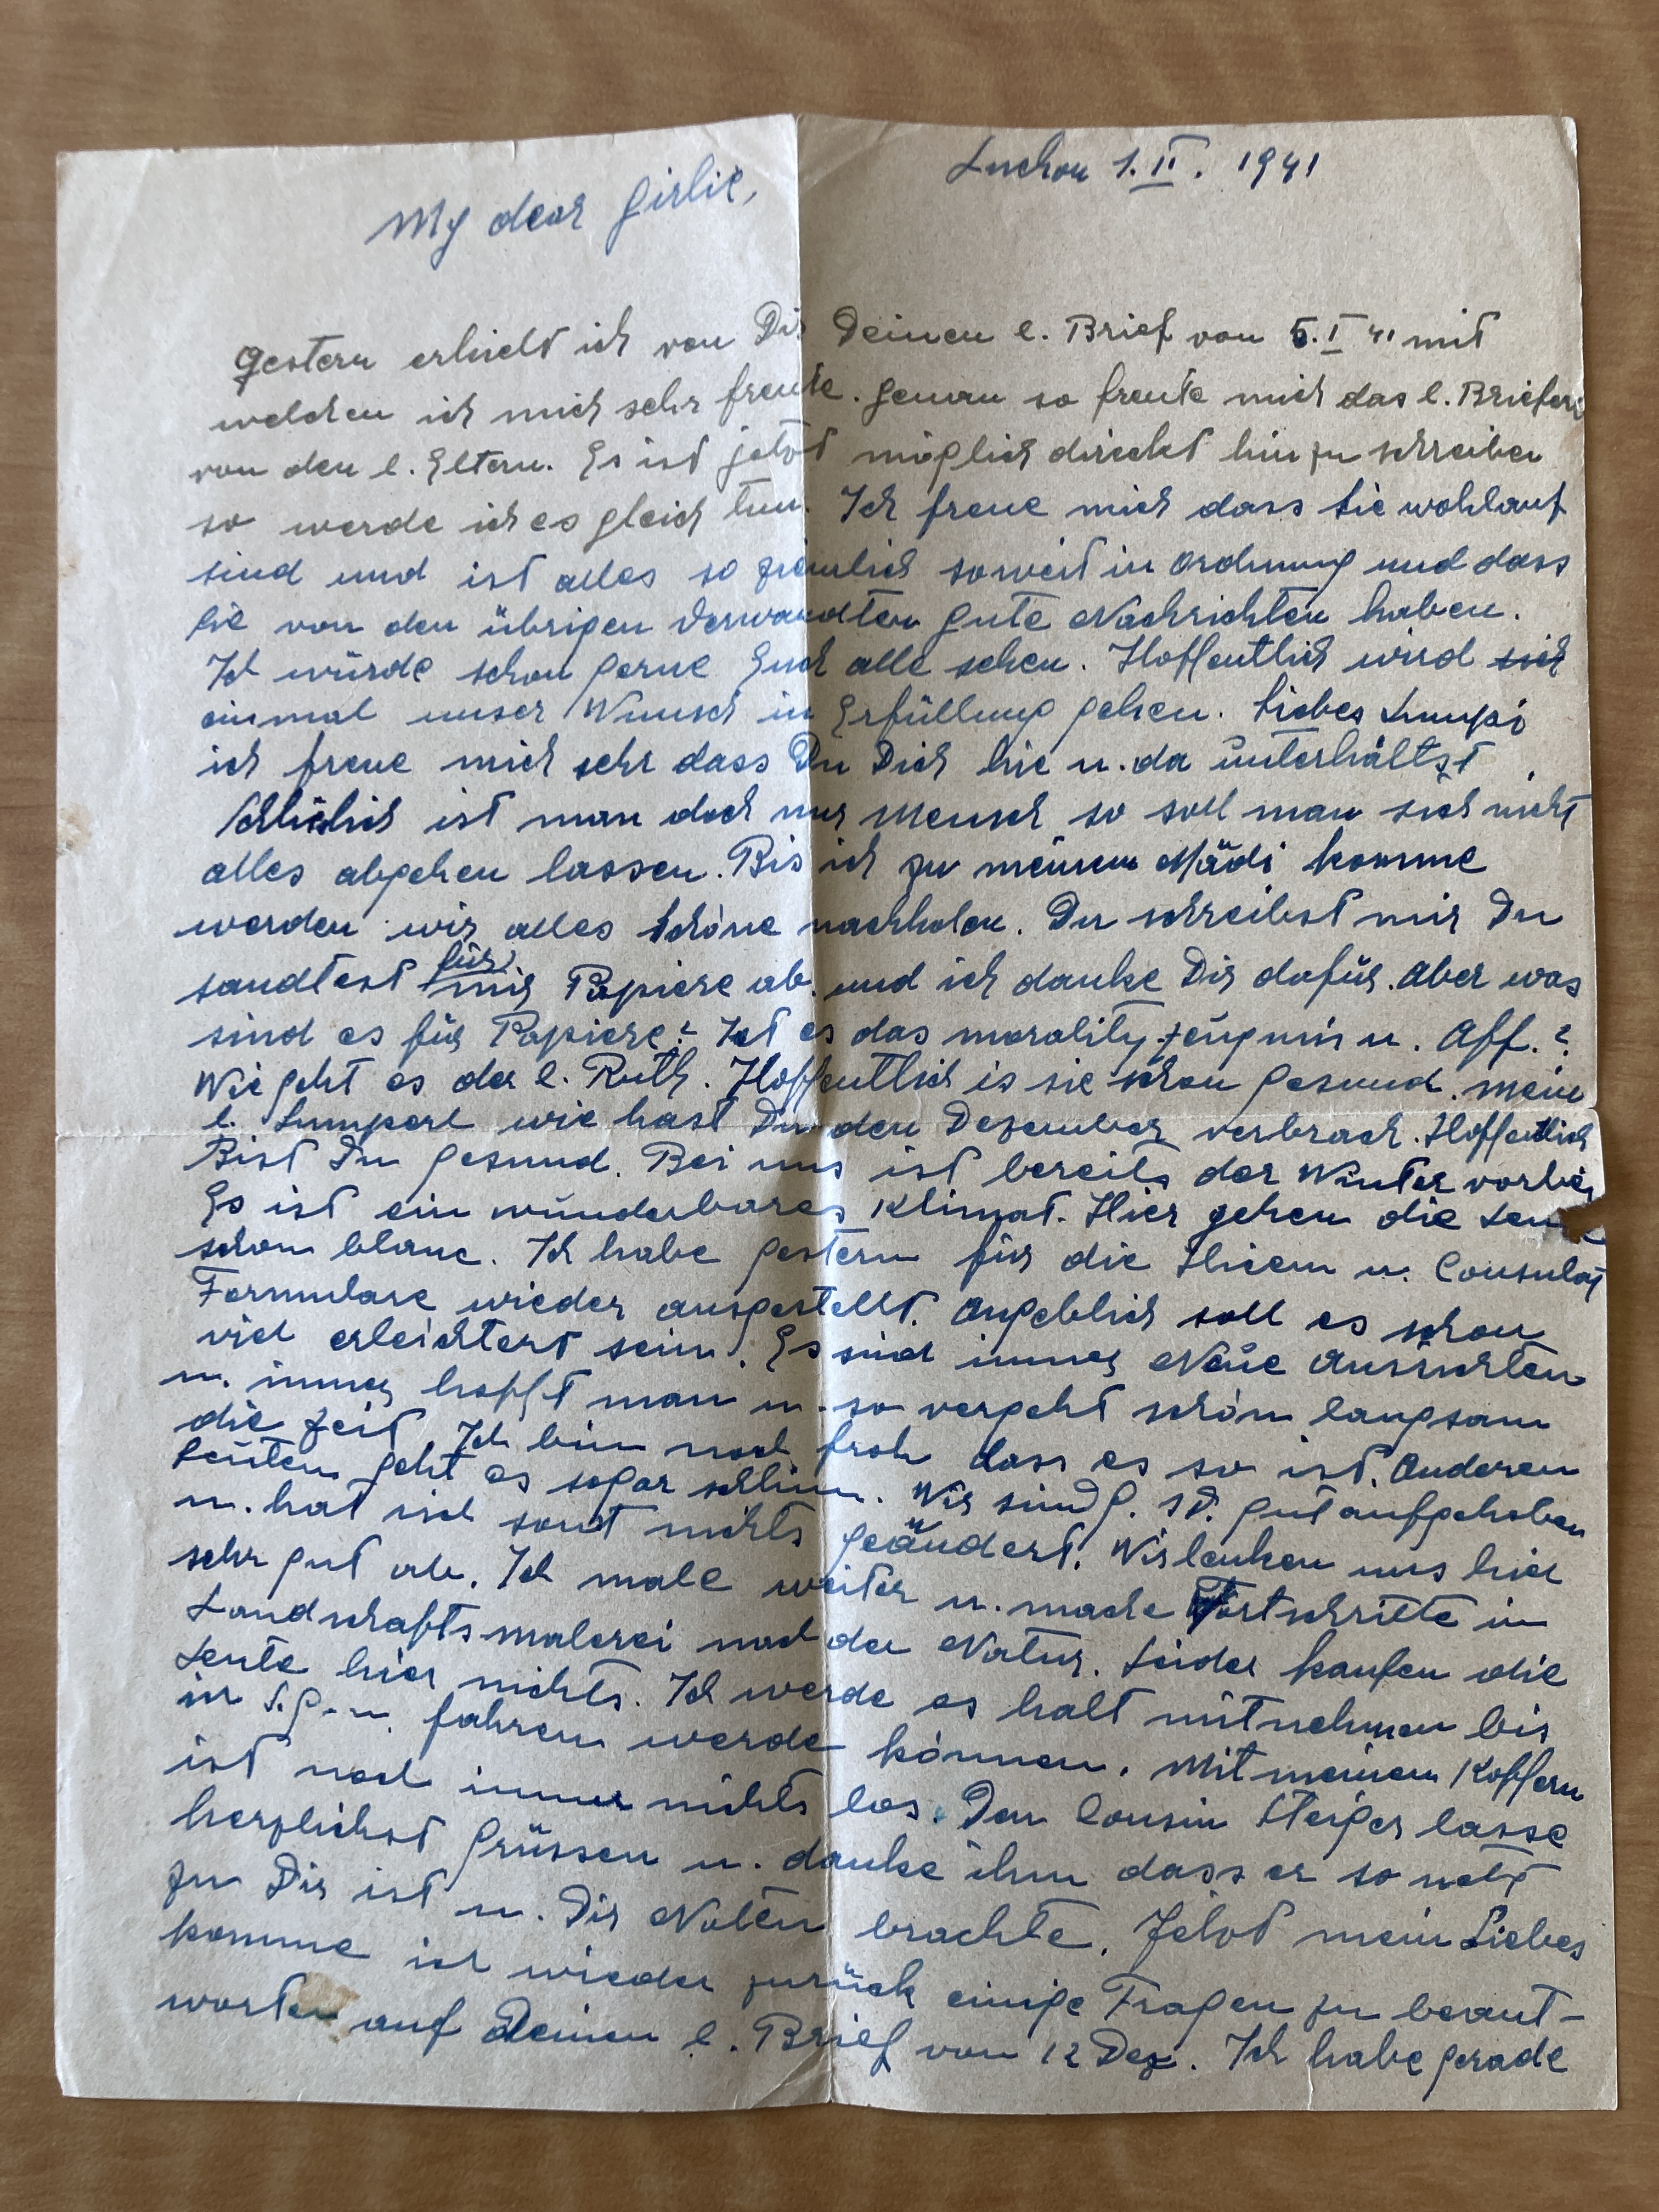 Luchon 1. II. 1941
My dear Girlie,
Gestern erhielt ich von Dir Deinen l. Brief von 5. I 41 mit
welchen ich mich sehr freute. Genau so freute mich das l. Brieferl
von den l. Eltern. Es ist jetzt möglich direckt hin zu schreiben
so werde ich es gleich tun. Ich freue mich dass Sie wohlauf
sind und ist alles so ziemlich soweit in Ordnung und dass
Sie von den übrigen Verwandten gute Nachrichten haben.
Ich würde schon gerne Euch alle sehen. Hoffentlich wird sich
einmal unser Wunsch in Erfüllung gehen. Liebes Lumpi
ich freue mich sehr dass Du Dich hie u. da unterhältst
ist man doch nur Mensch so soll man sich nicht
alles abgehen lassen. Bis ich zu meinem Mädi komme
werden wir alles Schöne nachholen. Du schreibst mir Du
sandtest für mir Papiere ab. und ich danke Dir dafür. Aber was
sind es für Papiere? Ist es das morality zeugnis u. Aff.?
Wie geht es der l. Ruth. Hoffentlich is sie schon gesund. Mein
l. Lumperl wie hast Du den Dezember verbrach. Hoffentlich
Bist Du gesund. Bei uns ist bereits der Winter vorbei
Es ist ein wunderbares Klimat. Hier gehen die Leute
schon blanc. Ich habe gestern für die Hicem u. Consulat
Formulare wieder ausgestellt. Angeblich soll es schon
viel erleichtert sein. Es sind immer Neue Aussichten
u. immer hofft man u. so vergeht schön langsam
die Zeit. Ich bin noch froh dass es so ist. Anderen
Leuten geht es sogar schlimm. Wir sind G. s. D. gut aufgehoben
u. hat sich sonst nichts geändert. Wir lenken uns hier
sehr gut ab. Ich male weiter u. mache Fortschritte in
Landschaftsmalerei nach der Natur. Leider kaufen die
Leute hier nichts. Ich werde es halt mitnehmen bis
ir fahren werde können. Mit meinen Koffern
ist noch immer nichts los. Den Cousin Steiger lasse
herzlichst Grüssen u. danke ihm dass er so nett
zu Dir ist u. Dir Noten brachte. Jetzt mein Liebes
komme ich wieder zurück einige Fragen zu beant-
worten auf Deinen l. Brief von 12 Dez. Ich habe gerade